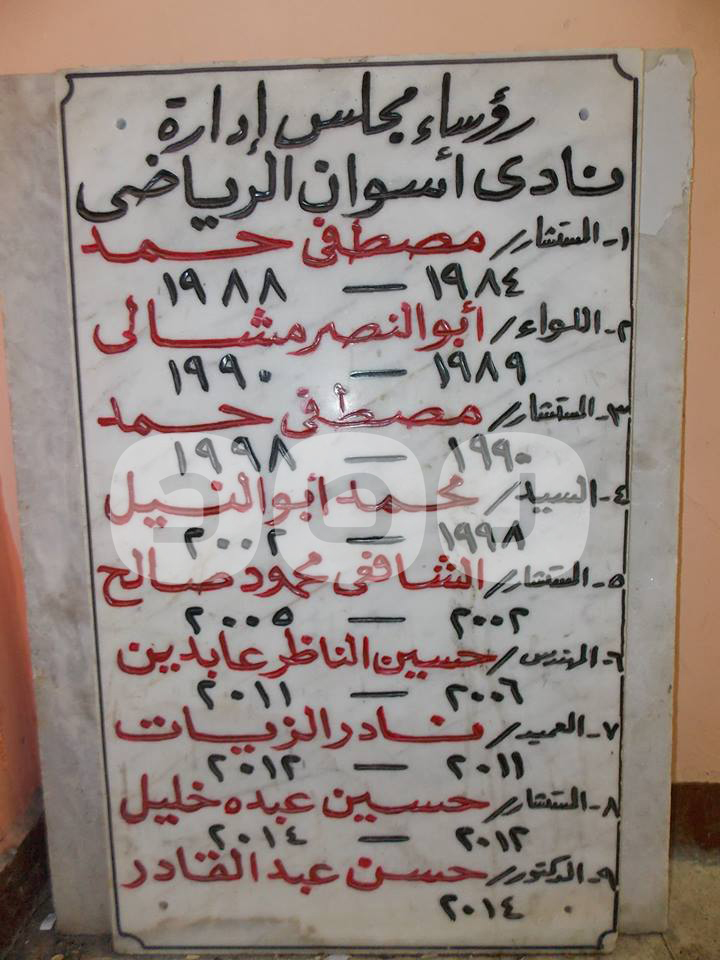 رؤساء مجلس إدارة
نادى أسوان الرياضى
١- المستشار/ مصطفى حمد
١٩٨٤ — ١٩٨٨
٢- اللواء/ أبو النصر مشالى
١٩٨٩ — ١٩٩٠
٣- المستشار/ مصطفى حمد
١٩٩٠ — ١٩٩٨
٤- السيد/ محمد أبو النيل
١٩٩٨ — ٢٠٠٢
٥- المستشار/ الشافعى محمود صالح
٢٠٠٢ — ٢٠٠٥
٦- المهندس/ حسين الناظر عابدين
٢٠٠٦ — ٢٠١١
٧- العميد/ نادر الزيات
٢٠١١ — ٢٠١٢
٨- المستشار/ حسين عبده خليل
٢٠١٢ — ٢٠١٤
٩- الدكتور/ حسن عبد القادر
٢٠١٤